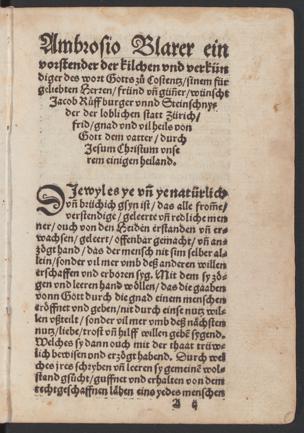 Ambrosio Blarer ein
vorstender der kilchen vnd verkün
diger des wort Gotts zů Costentz/sinem für
geliebten Herzen/fründ vñ güñer/wünscht
Jacob Rüff burger vnnd Steinschny-
der der loblichen statt Zürich/
frid/gnad vnd vil heils von
Gott dem vatter/durch
Jesum Christum vnse
rem einigen heiland.
DJewyl es ye vñ ye natürlich
vñ brüchich gsyn ist/das alle from̃e/
verstendige/geleerte vñ redliche men
ner/ouch von den Heiden erstanden vñ er-
wachsen/geleert/offenbar gemacht/vñ an-
zögt hand/das der mensch nit sim selber al-
lein/sonder vil mer vmb deß anderen willen
erschaffen vnd erboren syg. Mit dem sy zö-
gen vnd leeren hand wöllen/das die gaaben
vonn Gott durch die gnad einem menschen
eröffnet vnd geben/nit durch einse nutz wil-
len vßteilt/sonder vil mer vmb deß nächsten
nutz/liebe/trost vñ hilff willen gebẽ sygend.
Welches sy dann ouch mit der thaat trüw-
lich bewisen vnd erzögt habend. Durch wel
ches jres schryben vñ leeren sy gemeinẽ wol-
stand gsücht/guffnet vnd erhalten von dem
rechtgeschaffnen läben eins yedes menschen
A ij